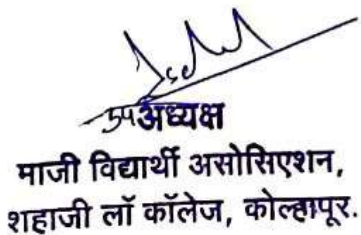 उपअध्यक्ष
माजी विद्यार्थी असोसिएशन,
शहाजी लॉ कॉलेज, कोल्हापूर.